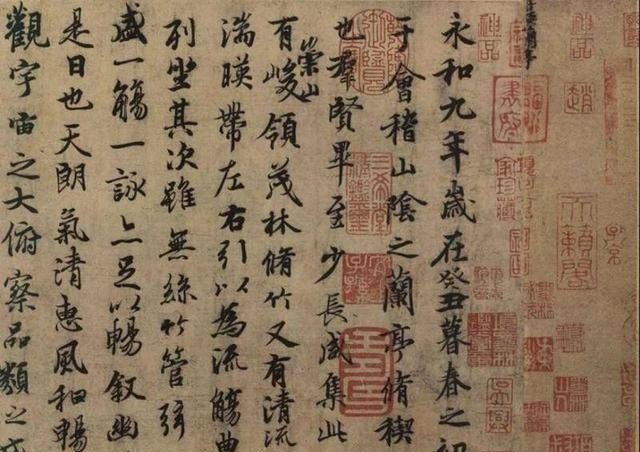 神品
趙
子京
天籟閣
神品
永和九年歲在癸丑暮春之初
于會稽山陰之蘭亭脩稧
也羣賢畢至少長咸集此
有崇山峻領茂林脩竹又有清流
湍暎帶左右引以為流觴曲
列坐其次雖無絲竹管弦
盛一觴一詠亦足以暢敘幽
是日也天朗氣清惠風和暢
觀宇宙之大俯察品類之